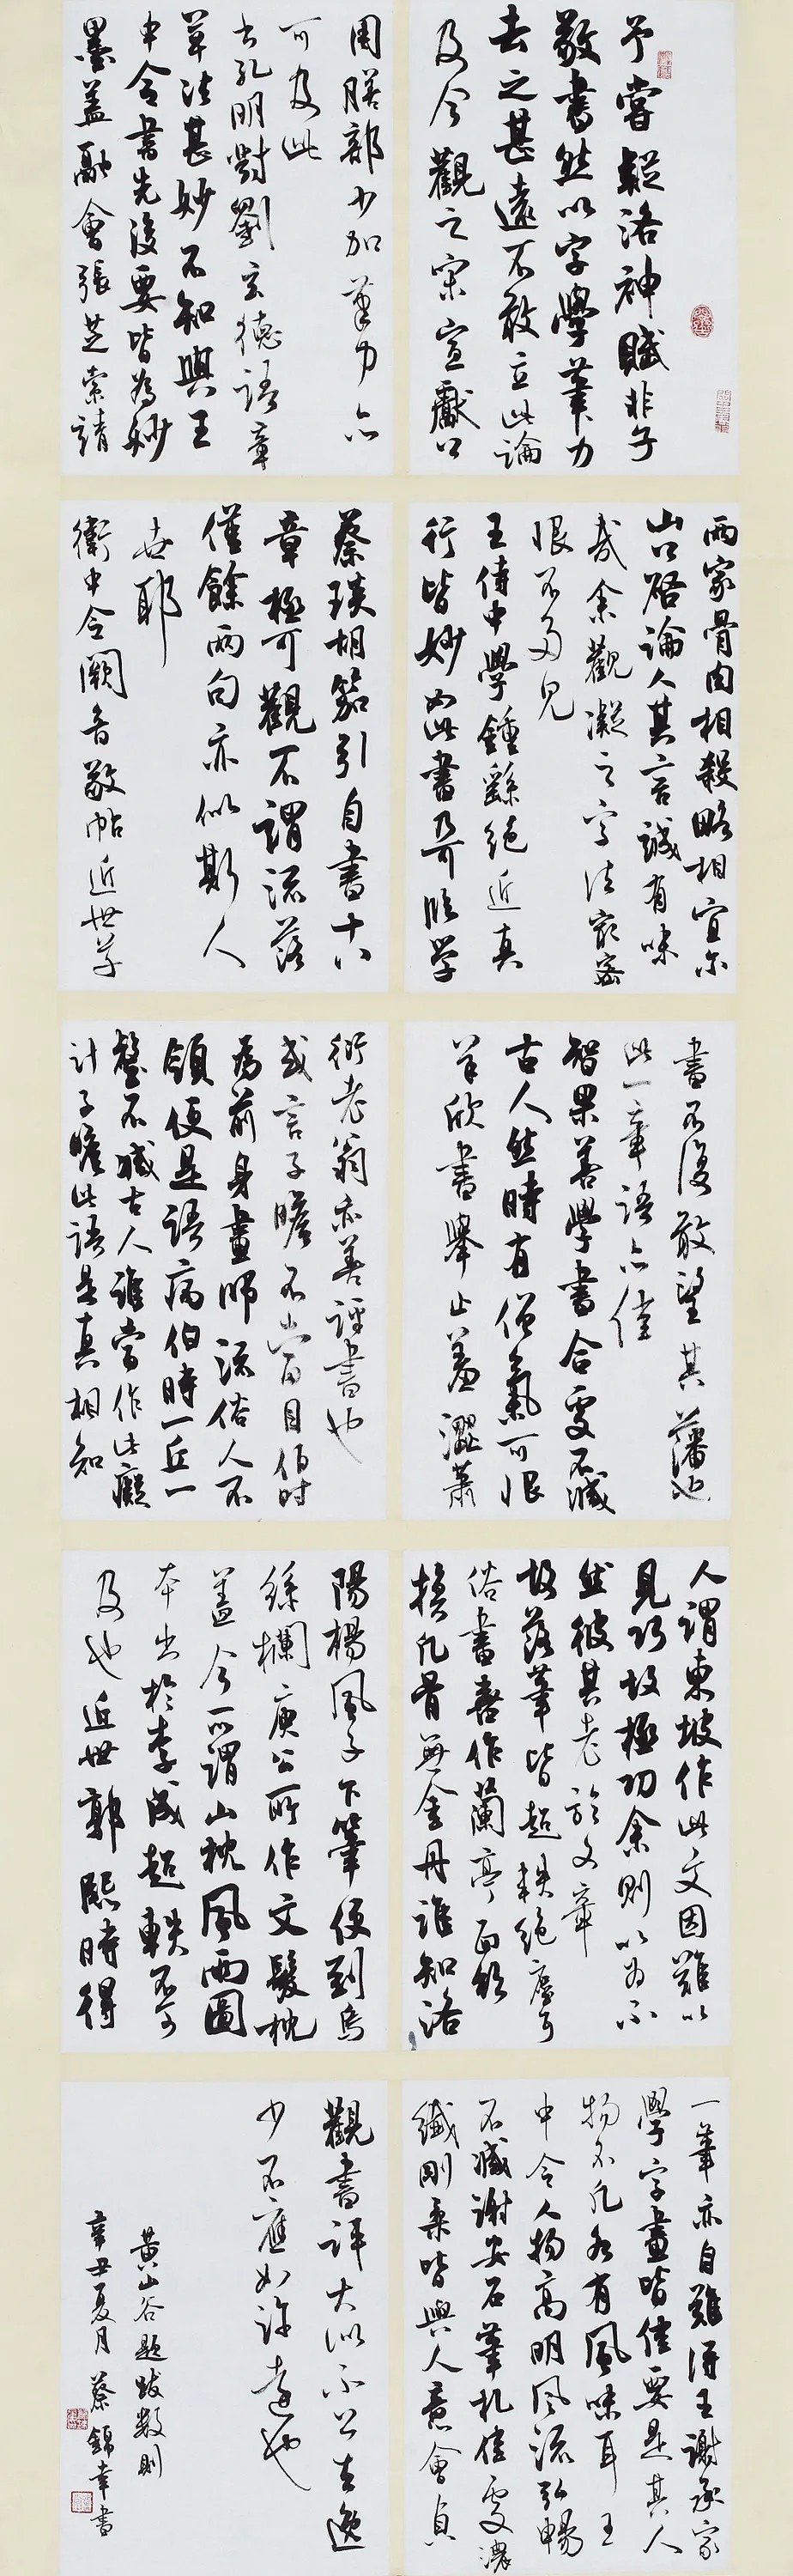 予嘗疑洛神賦非子
敬書然以字學筆力
去之甚遠不敢立此論
及今觀之宋宣獻公
周膳部少加筆力亦
可及此
出孔明對劉玄德語章
草法甚妙不知與王
中令書先後要皆為妙
墨蓋融會張芝索靖
兩家骨肉相殺略相宜尔
山谷啓論人其言誠有味
哉余觀凝之字法最密
恨不多見
王侍中學鍾繇絕近真
行皆妙如此書乃可臨學
蔡琰胡笳引自書十八
章極可觀不謂流落
僅餘兩句亦似斯人
身世耶
衛中令闕音敬帖近世草
書不復敢望其藩也
此一章語亦佳
智果善學書合處不減
古人然時有僧氣可恨
羊欣書舉止羞澀蕭
衍老翁亦善評書也
或言子瞻不當目伯時
為前身畫師流俗人不
領便是語病伯時一丘一
壑不減古人誰當作此癡
計子瞻此語是真相知
人謂東坡作此文因難以
見巧故極功余則以為不
然彼其老於文章
故落筆皆超軼絕塵耳
俗書喜作蘭亭面欲
換凡骨無金丹誰知洛
陽楊風子下筆便到烏
絲欄庾公所作文髮枕
蓋今所謂山枕風雨圖
本出於李成超軼不可
及也近世郭熙時得
一筆亦自難得王謝承家
學字畫皆佳要是其人
物不凡各有風味耳王
中令人物高明風流弘暢
不減謝安石筆札佳處濃
纖剛柔皆與人意會貞
觀書評大似不公去逸
少不應如許遠也
黃山谷題跋數則
辛丑夏月 蔡錦幸書